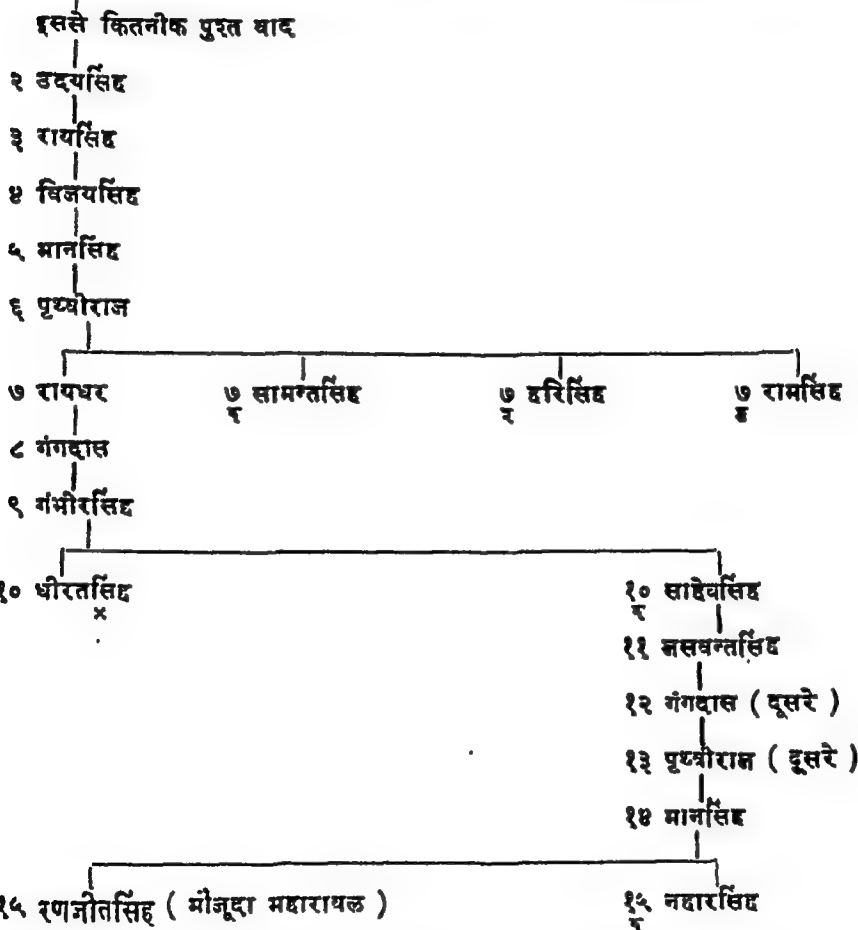 इससे कितनीक पुश्त बाद
२ उदयसिंह
३ रायसिंह
४ विजयसिंह
५ मानसिंह
६ पृथ्वीराज
७ रायधर ७/१ सामन्तसिंह ७/२ हरिसिंह ७/३ रामसिंह
८ गंगदास
९ गंभीरसिंह
१० धीरतसिंह × १०/१ साहेबसिंह
११ जसवन्तसिंह
१२ गंगदास ( दूसरे )
१३ पृथ्वीराज ( दूसरे )
१४ मानसिंह
१५ रणजीतसिंह ( मौजूदा महारावल ) १५/१ नहारसिंह